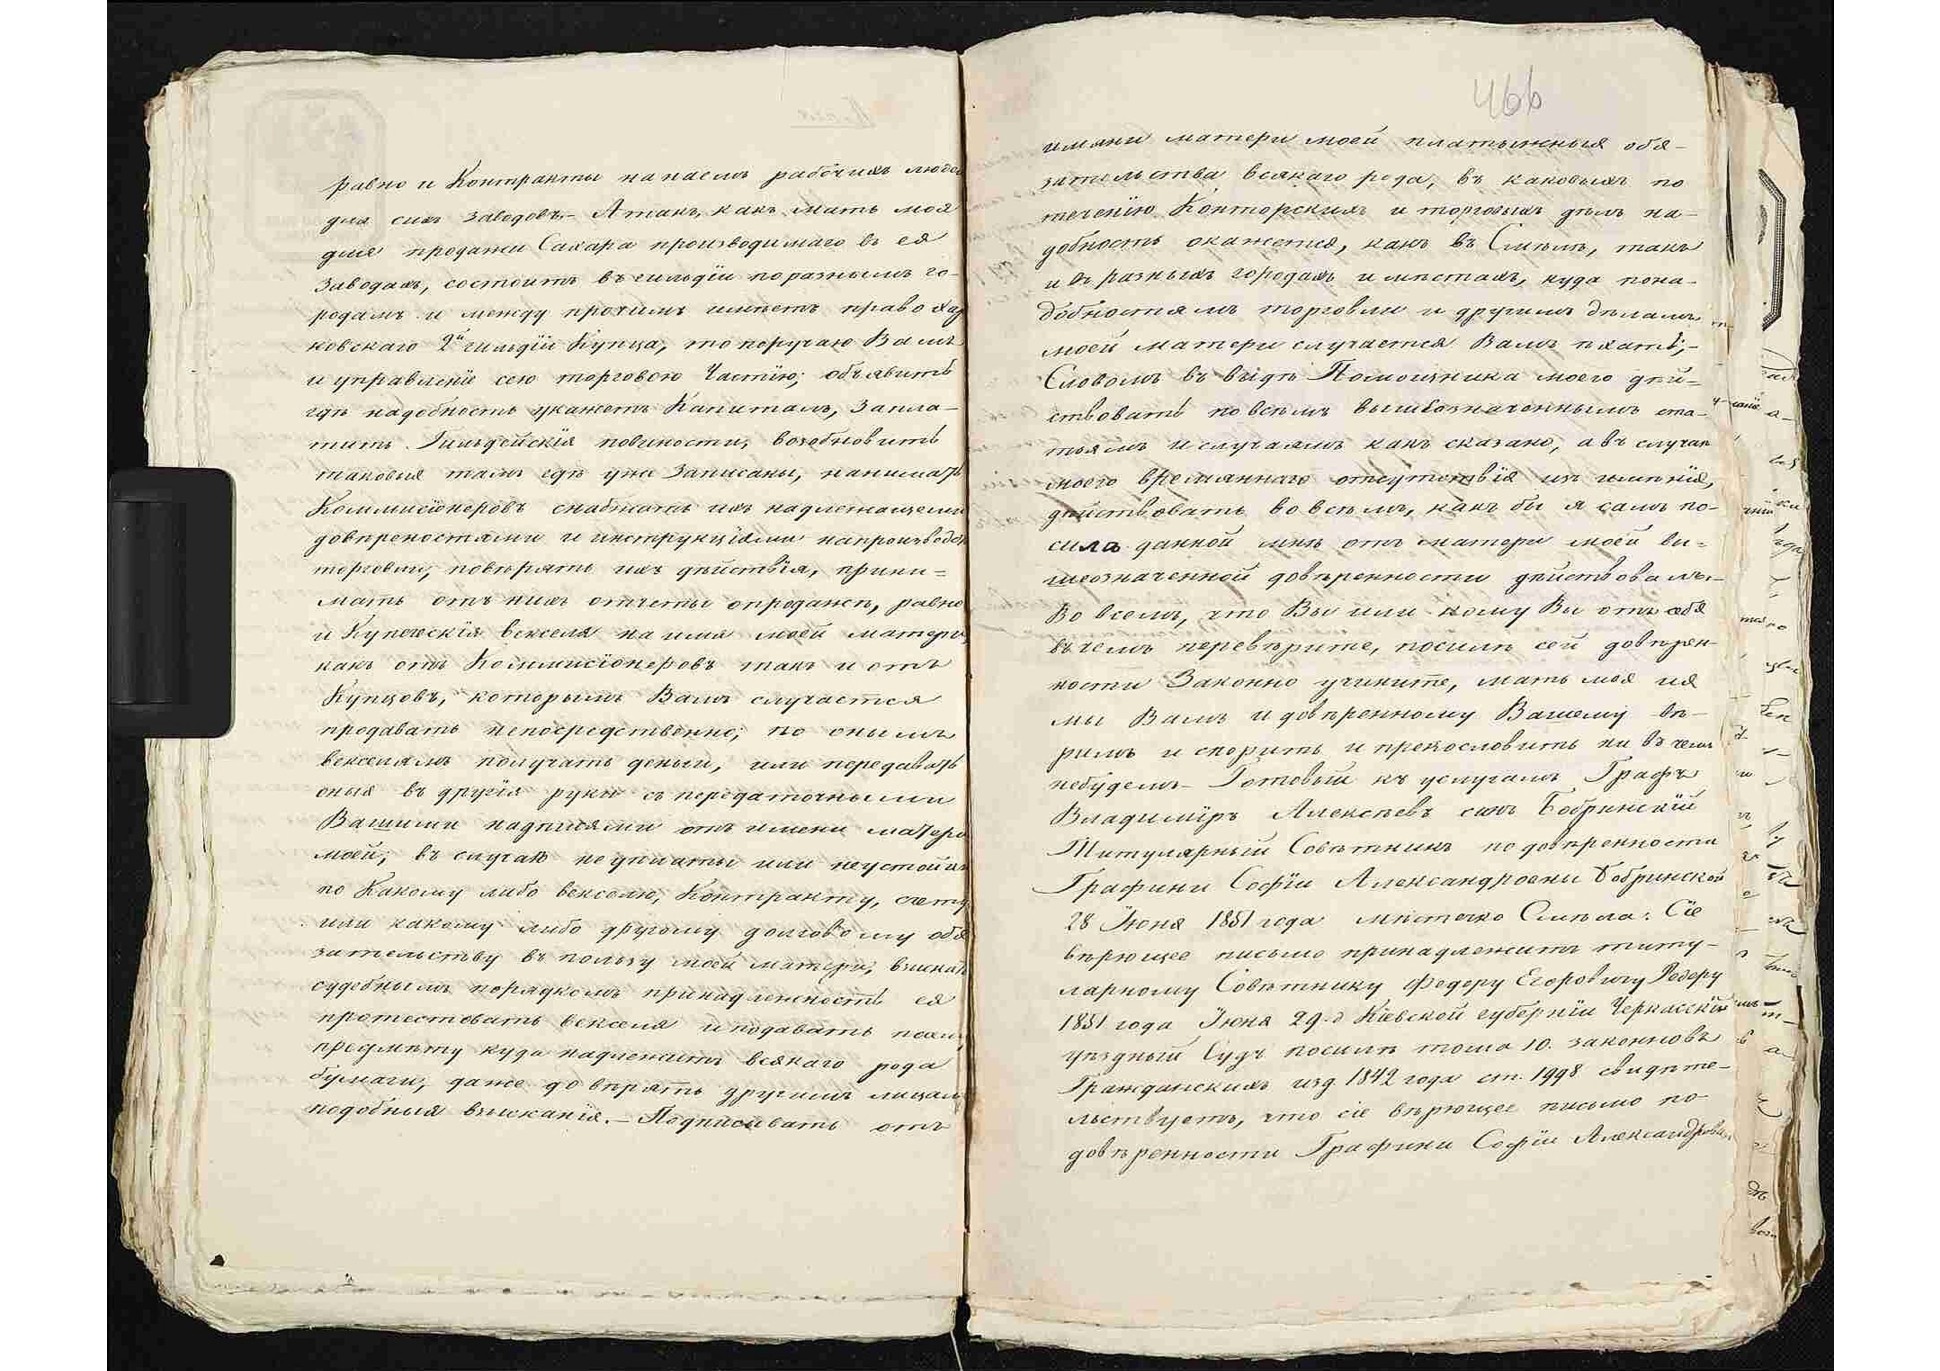 равно и Контракты на наемъ рабочихъ людей
для сихъ заводовъ.- А такъ, какъ мать моя
для продажи Сахара производимаго въ ея
Заводахъ, состоитъ въ гильдіи по разнымъ го-
родамъ и между прочимъ имѣетъ право Хар
ковскаго 2й гильдіи Купца, то поручаю Вамъ
и управленіе сею торговою Частію; объявить
гдѣ надобность укажетъ Капиталъ, Запла-
тить Гильдейскія повиности, возобновить
таковыя тамъ гдѣ уже Записаны, нанимать
Коммисіонеровъ снабжать ихъ надлежащеми
довѣреностями и инструкціями на производс
торговли, повѣрять ихъ дѣйствія, прини=
мать отъ нихъ отчеты о продажѣ, равно
и Купеческія векселя на имя моей матери,
какъ отъ Коммисіонеровъ такъ и отъ
Купцовъ, которымъ Вамъ случается
продавать непосредственно; по онымъ
векселямъ получать деньги, или передавать
оныя въ другія руки съ передаточными
Вашими надписями отъ имени матери
моей; въ случаѣ неуплаты или неустойки
по Какому либо векселю, Контракту, счету
или какому либо другому долговому обя
зательству въ пользу моей матери, взыскать
судебнымъ порядкомъ принадлежность ея
протестовать векселя и подавать по
предмѣту куда надлежитъ всякаго рода
бумаги, даже довѣрять другимъ лицамъ
подобныя взысканія.- Подписывать отъ
466
имяни матери моей платежныя обя-
зательства всякаго рода, въ каковыхъ по
теченію Конторскихъ и торговыхъ дѣлъ на-
добность окажется, какъ въ Смѣлѣ, такъ
и въ разныхъ городахъ и мѣстахъ, куда пона-
добностямъ торговли и другимъ дѣламъ
моей матери случается Вамъ ѣхать;-
Словомъ въ видѣ Помощника моего дѣй=
ствовать по всѣмъ вышеозначеннымъ ста-
тьямъ и случаямъ какъ сказано, а въ случаѣ
моего врѣмяннаго отсутствія изъ имѣнія,
дѣйствовать во всѣмъ, какъ бы я самъ по-
сила данной мнѣ отъ матери моей вы=
шеозначенной довѣренности дѣйствовалъ.-
Во всемъ, что Вы или кому Вы отъ себя
въ чемъ перевѣрите, посилѣ сей довѣрен-
ности Законно учините, мать моя и я
мы Вамъ и довѣренному Вашему вѣ-
римъ и спорить и прекословить ни въ чемъ
небудемъ- Готовый къ услугамъ Графъ
Владиміръ Алексѣевъ сынъ Бобринскій
Титулярный Совѣтникъ по довѣренности
Графини Софіи Александровны Бобринской
28 Іюня 1851 года мѣстечко Смѣла: Сіе
вѣрющее письмо принадлежитъ титу-
лярному Совѣтнику Федеру Егоровичу Редеру
1851 года Іюня 29-д Кіевской губерніи Черкасскій
уѣздный Судъ посилѣ тома 10. законновъ
Гражданскихъ изд. 1842 года ст. 1998 свидѣте-
льствуетъ, что сіе вѣрющее письмо по-
довѣренности Графини Софіи Александровны